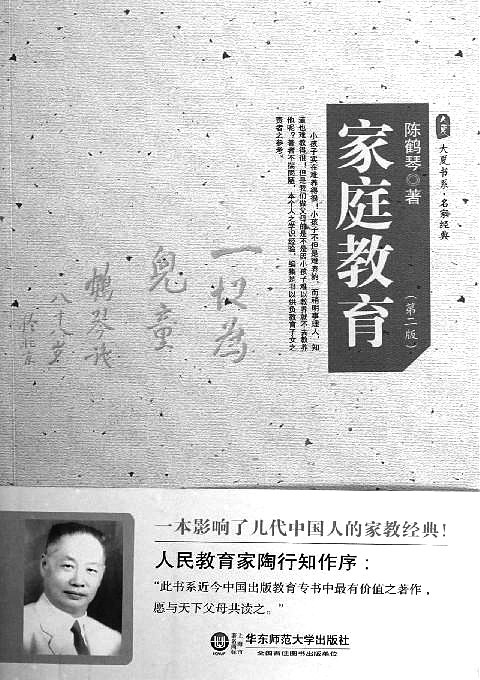 大夏书系·名家经典
陈鹤琴◎著
家庭教育
（第二版）
小孩子实在难养得很！小孩子不但是难养的，而稍明事理人，知
道也难教得很！但是我们做父母的是不是因小孩子难以教养就不去教养
他呢？著者不揣简陋，本个人之学识经验，编集是书以供负教育子女之
责者之参考。
一切为
兒童
鹤琴
一本影响了几代中国人的家教经典！
人民教育家陶行知作序：
“此书系近今中国出版教育专书中最有价值之著作，
愿与天下父母共读之。”
华东师范大学出版社
全国百佳图书出版单位